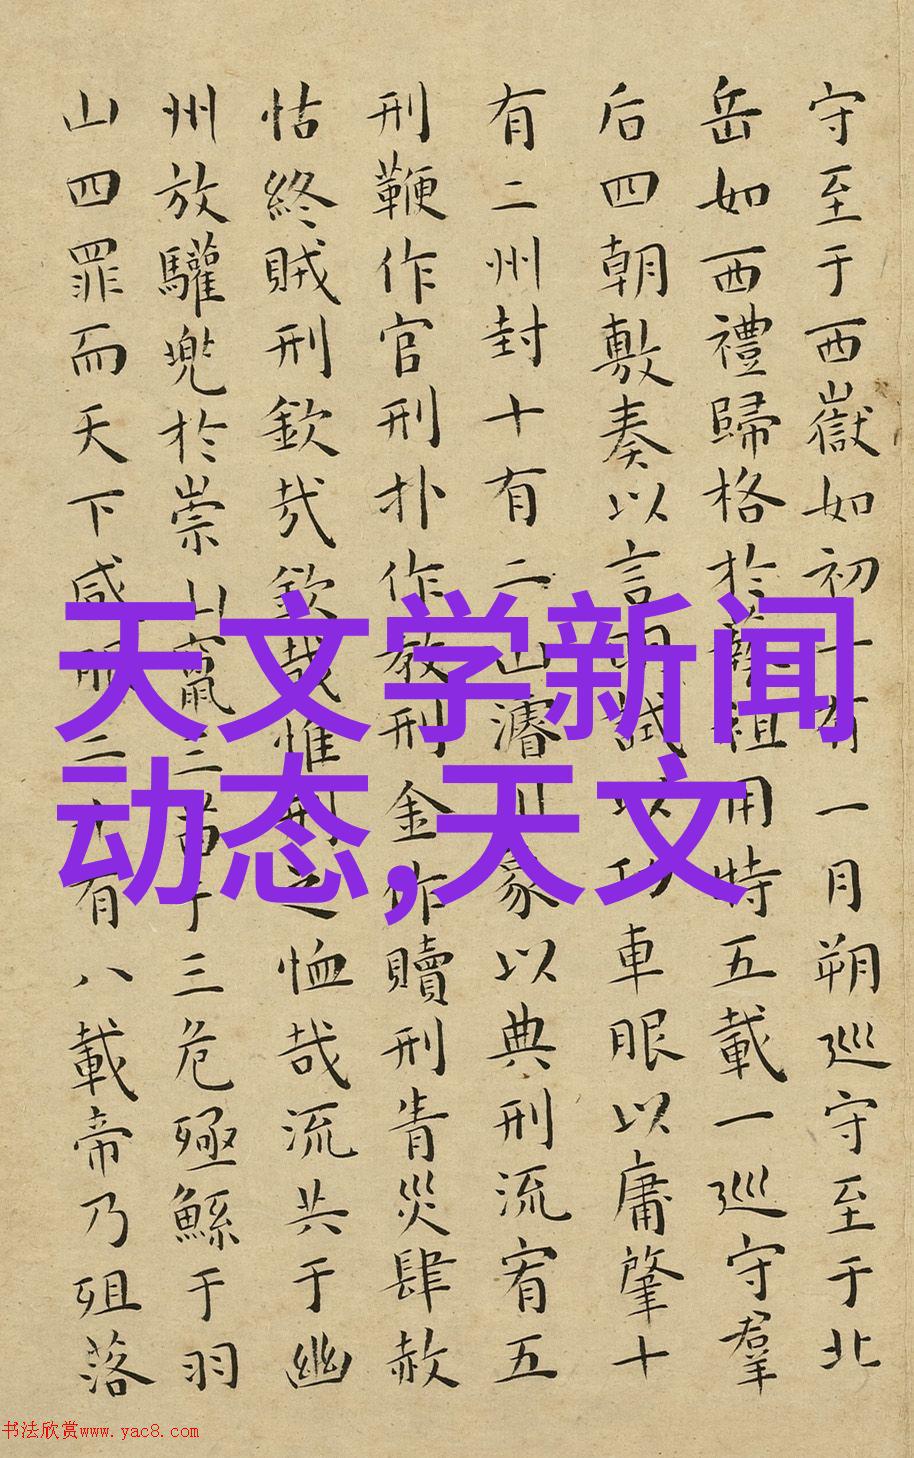 守至于西嶽如初十有一月朔巡守至于北
岳如西禮歸格於藝祖用特五載一巡守羣
后四朝敷奏以言明試以功車眼以庸肇十
有二州封十有二山濬川象以典刑流宥五
刑鞭作官刑扑作教刑金作贖刑眚災肆赦
怙終賊刑欽哉欽哉惟刑之恤哉流共于幽
州放驩兜於崇山竄三苗于三危殛鯀于羽
山四罪而天下咸服二十有八載帝乃殂落
天文学新闻
动态,天文
书法欣赏www.yac8.com